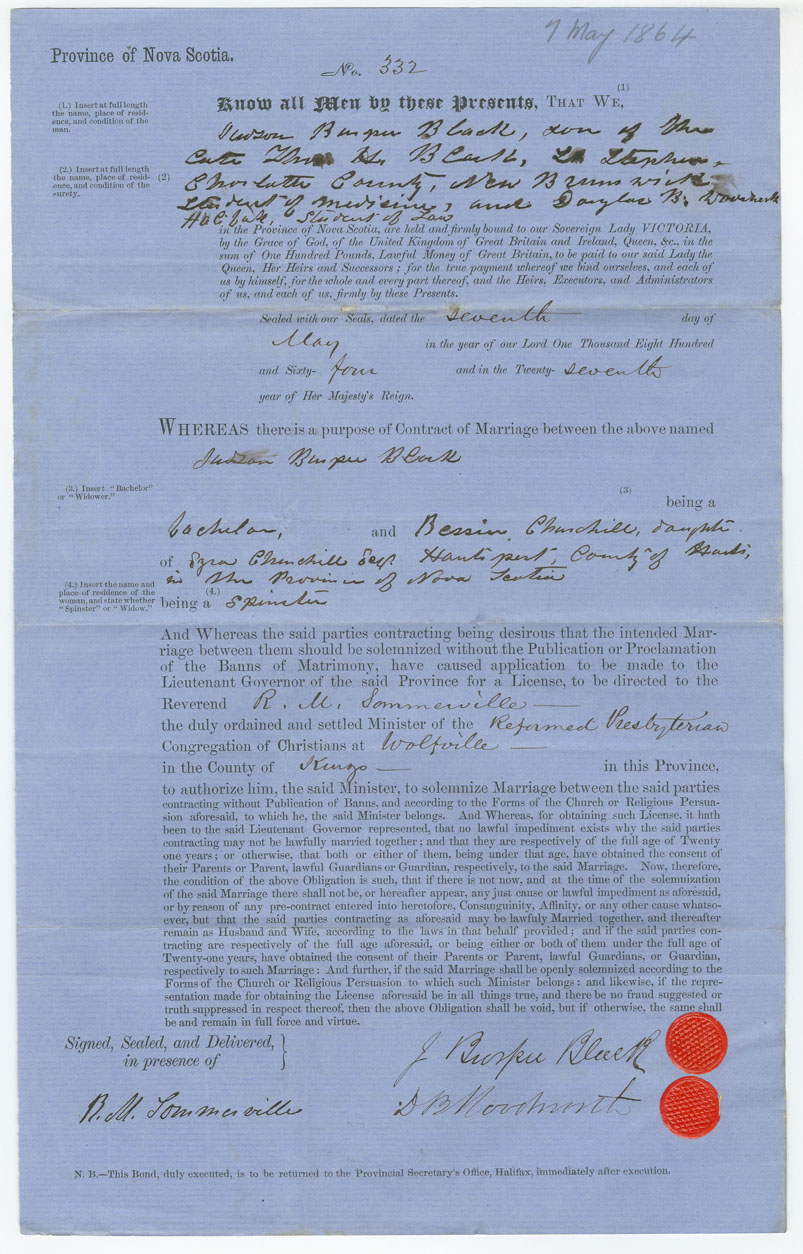 7 May 1864
Province of Nova Scotia.
No. 332
(1)
Know all Men by these Presents, THAT WE,
(1.) Insert at full length
the name, place of resid-
ence, and condition of the
man.
Judson Burpee Black, son of the
Late Black, St Stephen,
(2.) Insert at full length
the name, place of resid-
ence, and condition of the
surety.
(2)
Charlotte County, New Brunswick
Student of Medicine, and Douglas B. Woodworth
Halifax, Student of Law
in the Province of Nova Scotia, are held and firmly bound to our Sovereign Lady VICTORIA,
by the Grace of God, of the United Kingdom of Great Britain and Ireland, Queen, &c., in the
sum of One Hundred Pounds, Lawful Money of Great Britain, to be paid to our said Lady the
Queen, Her Heirs and Successors; for the true payment whereof we bind ourselves, and each of
us by himself, for the whole and every part thereof, and the Heirs, Executors, and Administrators
of us, and each of us, firmly by these Presents.
Sealed with our Seals, dated the seventh day of
May in the year of our Lord One Thousand Eight Hundred
and Sixty- four and in the Twenty- seventh
year of Her Majesty's Reign.
WHEREAS there is a purpose of Contract of Marriage between the above named
Judson Burpee Black
(3.) Insert "Bachelor"
or "Widower."
(3)
being a
bachelor, and Bessie Churchill, daughter
of Ezra Churchill Esqr. Hantsport, County of Hants,
in the Province of Nova Scotia
(4.) Insert the name and
place of residence of the
woman, and state whether
"Spinster" or "Widow."
(4.)
being a Spinster
And Whereas the said parties contracting being desirous that the intended Mar-
riage between them should be solemnized without the Publication or Proclamation
of the Banns of Matrimony, have caused application to be made to the
Lieutenant Governor of the said Province for a License, to be directed to the
Reverend R. M. Sommerville
the duly ordained and settled Minister of the Reformed Presbyterian
Congregation of Christians at Wolfville
in the County of Kings in this Province,
to authorize him, the said Minister, to solemnize Marriage between the said parties
contracting without Publication of Banns, and according to the Forms of the Church or Religious Persua-
sion aforesaid, to which he, the said Minister belongs. And Whereas, for obtaining such License, it hath
been to the said Lieutenant Governor represented, that no lawful impediment exists why the said parties
contracting may not be lawfully married together; and that they are respectively of the full age of Twenty
one years; or otherwise, that both or either of them, being under that age, have obtained the consent of
their Parents or Parent, lawful Guardians or Guardian, respectively, to the said Marriage. Now, therefore,
the condition of the above Obligation is such, that if there is not now, and at the time of the solemnization
of the said Marriage there shall not be, or hereafter appear, any just cause or lawful impediment as aforesaid,
or by reason of any pre-contract entered into heretofore, Consanguinity, Affinity, or any other cause whatso-
ever, but that the said parties contracting as aforesaid may be lawfuly Married together, and thereafter
remain as Husband and Wife, according to the laws in that behalf provided; and if the said parties con-
tracting are respectively of the full age aforesaid, or being either or both of them under the full age of
Twenty-one years, have obtained the consent of their Parents or Parent, lawful Guardians, or Guardian,
respectively to such Marriage: And further, if the said Marriage shall be openly solemnized according to the
Forms of the Church or Religious Persuasion to which such Minister belongs: and likewise, if the repre-
sentation made for obtaining the License aforesaid be in all things true, and there be no fraud suggested or
truth suppressed in respect thereof, then the above Obligation shall be void, but if otherwise, the same shall
be and remain in full force and virtue.
Signed, Sealed, and Delivered,
in presence of
J Burpee Black
R. M. Sommerville
D B Woodworth
N. B.—This Bond, duly executed, is to be returned to the Provincial Secretary's Office, Halifax, immediately after execution.